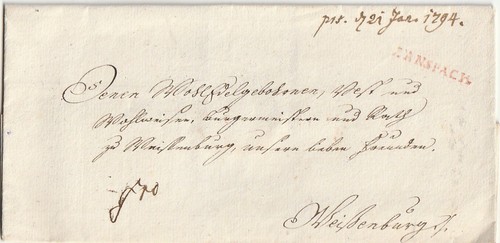 prs. d 21 Jan. 1794.
ANSPACH
Denen WohlEdelgebohrnen, Vest und
Wohlweisen, Burgermeistern und Rath
zu Weissenburg, unsern lieben Freunden.
Weissenburg